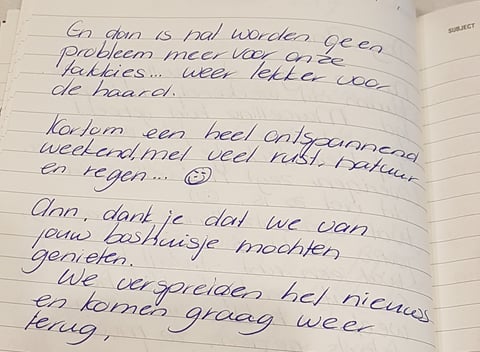 En dan is nat worden geen
probleem meer voor onze
takkies... weer lekker voor
de haard.
Kortom een heel ontspannend
weekend, met veel rust, natuur
en regen... ☺
Ann, dank je dat we van
jouw boshuisje mochten
genieten.
We verspreiden het nieuws
en komen graag weer
terug,
SUBJECT